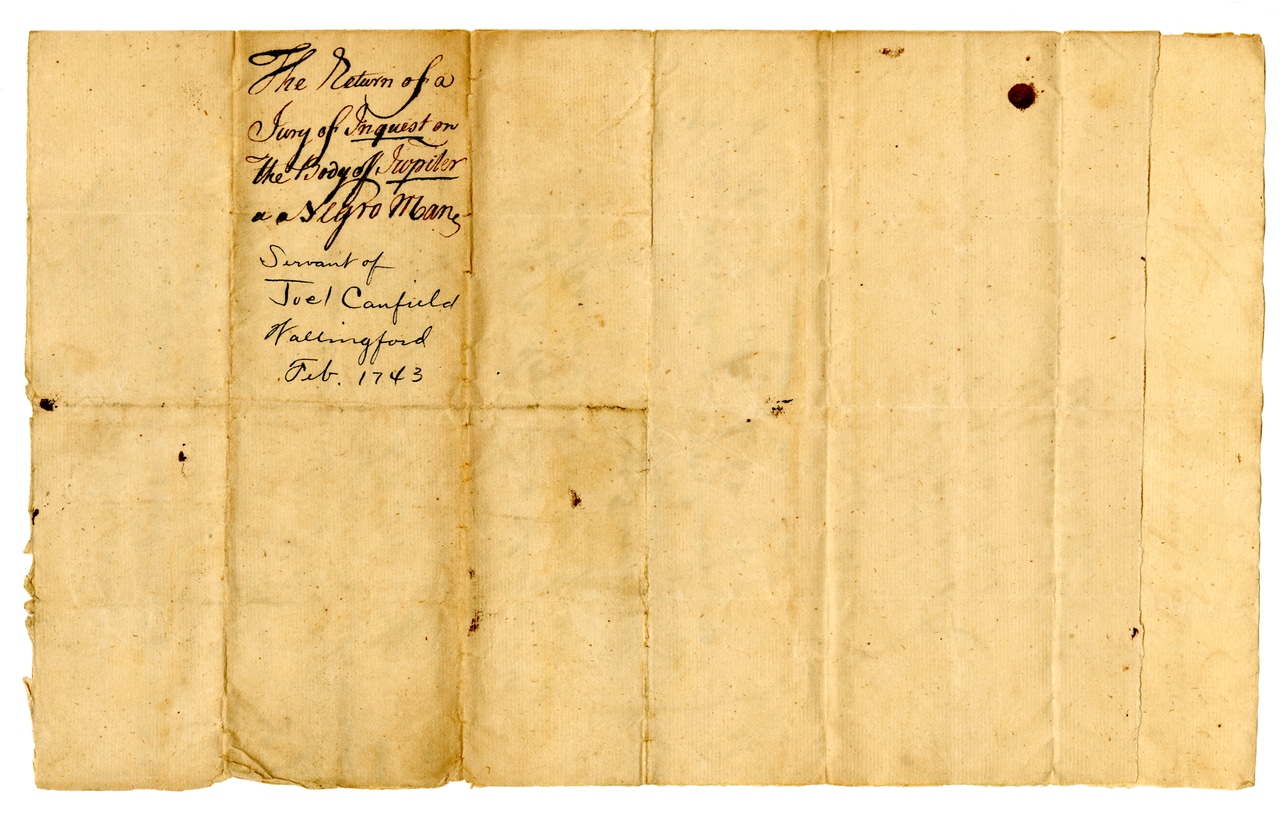 The Return of a
Jury of Inquest on
the Body of Jupiter
a a Negro Man,
Servant of
Joel Canfield
Wallingford
Feb. 1743